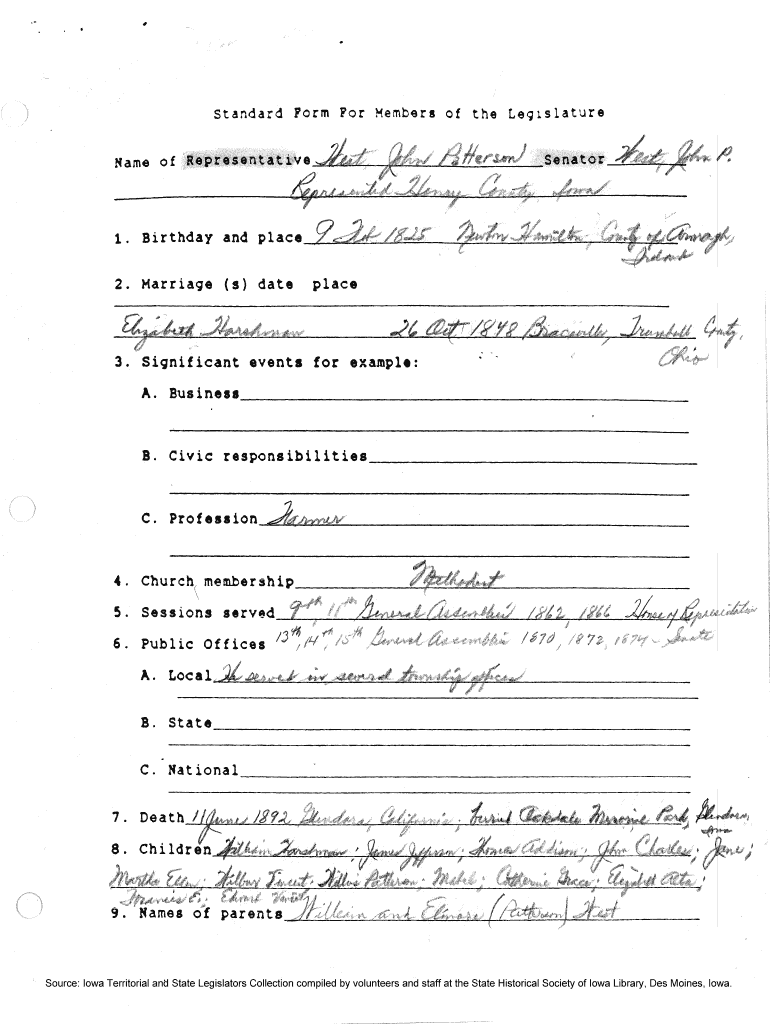 Standard Form For Members of the Legislature
Name of Representative West, John Patterson Senator West, John P.
Represented Henry County, Iowa
1. Birthday and place 9 Feb 1825 Newton Hamilton, County of Armagh,
Ireland
2. Marriage (s) date place
Elizabeth Harshman 26 Oct 1848 Braceville, Trumbull County,
Ohio
3. Significant events for example:
A. Business
B. Civic responsibilities
C. Profession Farmer
4. Church membership Methodist
5. Sessions served 9th, 11th General Assemblies 1862, 1866 House of Representatives
6. Public Offices 13th, 14th, 15th General Assemblies 1870, 1872, 1874 - Senate
A. Local He served in several township offices
B. State
C. National
7. Death 11 June 1892 Glendora, California; buried Oakdale Memorial Park, Glendora,
Iowa
8. Children William Harshman; James Jefferson; Thomas Addison; John Charles; Jane;
Martha Ellen; Wilbur Vincent; Willis Patterson; Mabel; Catherine Grace; Elizabeth Alta;
Frances E.; Edward
9. Names of parents William and Elinore (Patterson) West
Source: Iowa Territorial and State Legislators Collection compiled by volunteers and staff at the State Historical Society of Iowa Library, Des Moines, Iowa.